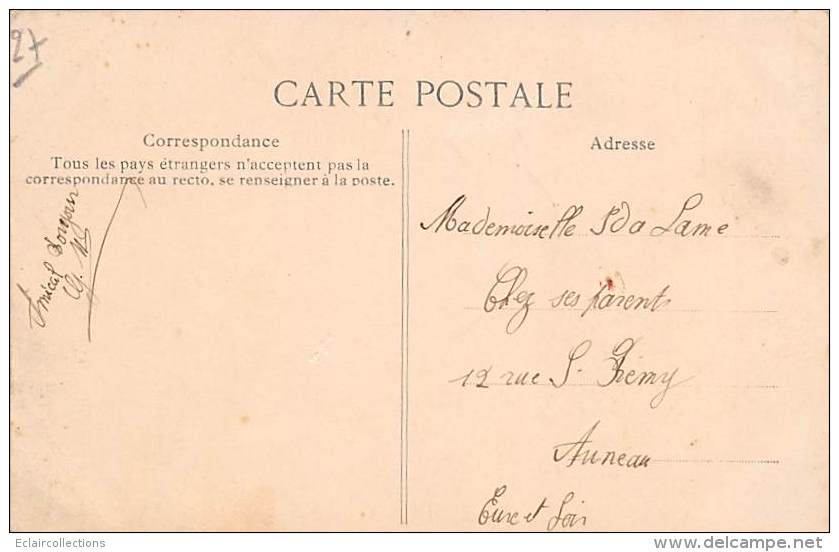 27
CARTE POSTALE
Correspondance
Tous les pays étrangers n'acceptent pas la
correspondance au recto, se renseigner à la poste.
Amical Bonjour
Adresse
Mademoiselle Ida Lame
Chez ses parents
12 rue St Rémy
Auneau
Eure et Loir
Eclaircollections
www.delcampe.net